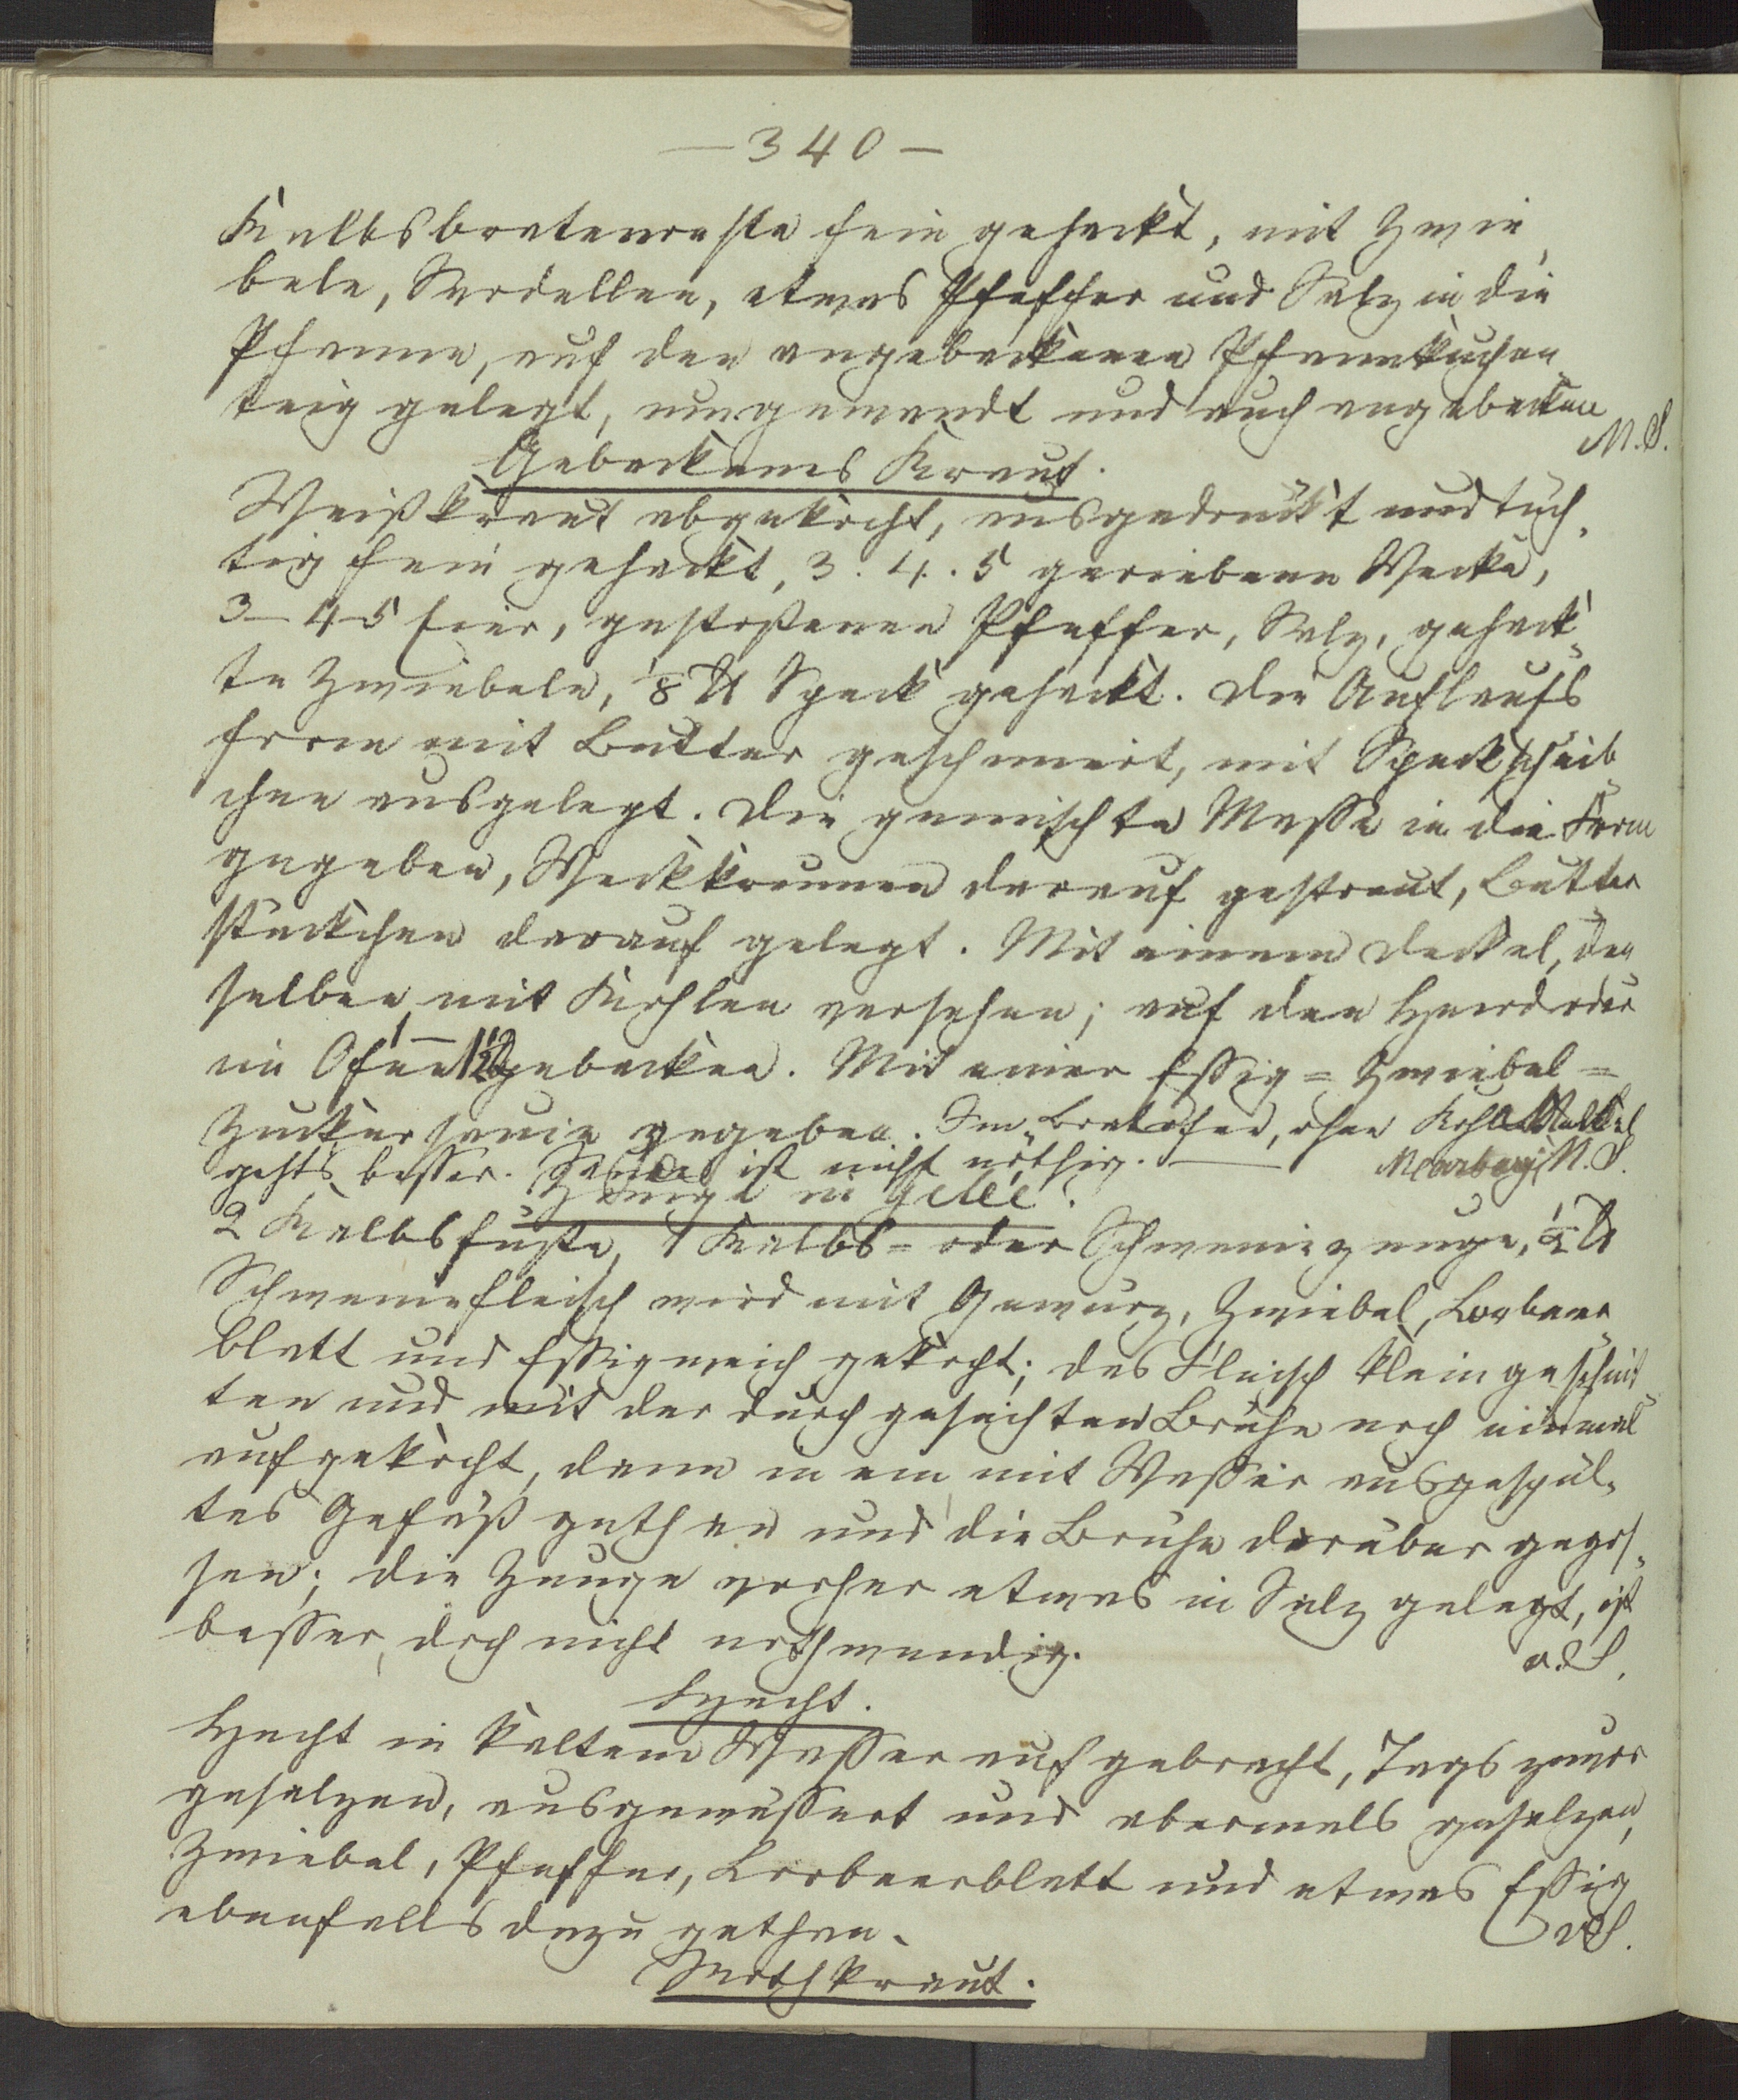 — 340 —
Kalbsbratenreste fein gehackt, mit Zwie
beln, Sardellen, etwas Pfeffer und Salz in die
Pfanne, auf den angebackenen Pfannkuchen
teig gelegt, umgewandt und auch angebacken
M. S.
Gebackenes Kraut.
Weißkraut abgekocht, ausgedrückt und tüch
tig fein gehackt, 3. 4. 5 geriebene Wecke,
3–4–5 Eier, gestoßenen Pfeffer, Salz, gehack
te Zwiebeln, 1/8 ℔ Speck gehackt. Die Auflaufs
form mit Butter geschmiert, mit Speckscheib
chen ausgelegt. Die gemischte Masse in die Form
gegeben, Weckkrumen darauf gestreut, Butter
stückchen darauf gelegt. Mit einem Deckel, den
selben mit Kohlen versehen; auf den Heerd oder
im Ofen gebacken. Mit einer Essig= Zwiebel=
Zuckersauce gegeben. Im Bratofen, ohne
gehts besser. ist nicht nöthig. — M. S.
Zunge in Gelée.
2 Kalbsfüße, 1 Kalbs= oder Schweinezunge, 1/2 ℔
Schweinefleisch wird mit Gewürz, Zwiebel, Lorbeer
blatt und Essig weich gekocht; das Fleisch klein geschnit
ten und mit der durchgeseihten Brühe noch einmal
aufgekocht, dann in ein mit Wasser ausgespül
tes Gefäß gethan und die Brühe darüber gegos
sen; die Zunge vorher etwas in Salz gelegt, ist
besser, doch nicht nothwendig.
v. S.
Hecht.
Hecht in kaltem Wasser aufgebracht, Tags zuvor
gesalzen, ausgewässert und abermals gesalzen,
Zwiebel, Pfeffer, Lorbeerblatt und etwas Essig
ebenfalls dazu gethan.
v. S.
Rothkraut.